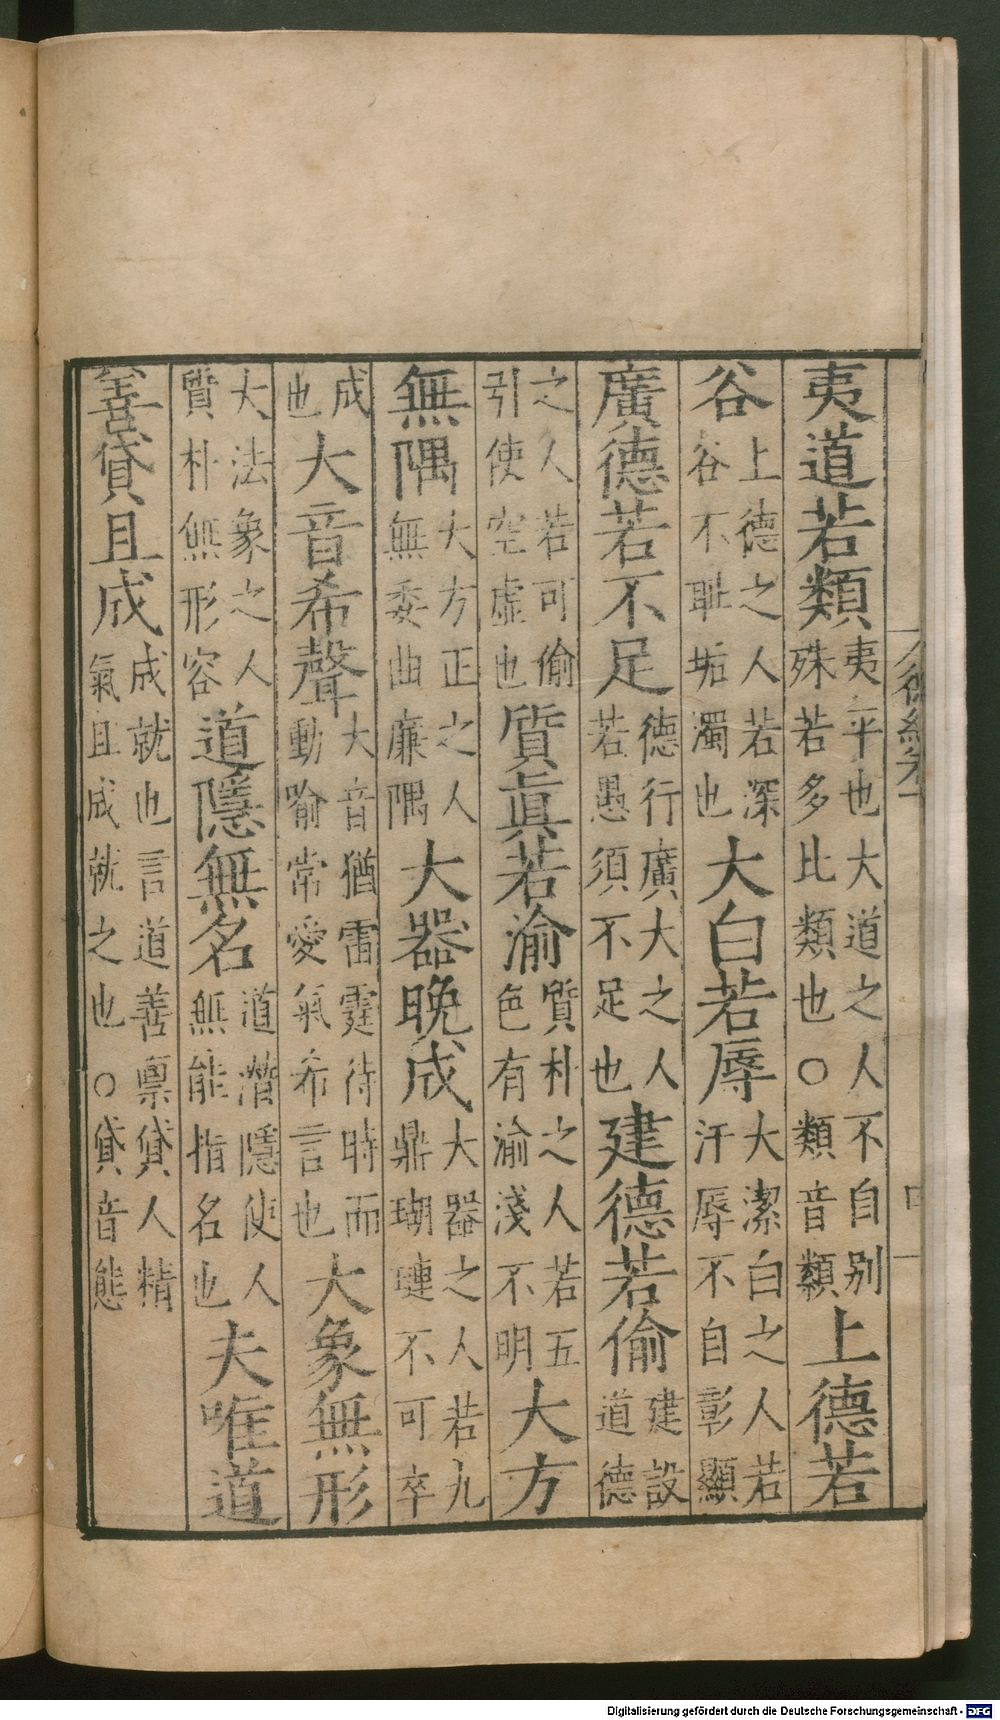 夷道若類夷平也大道之人不自别殊若多比類也○類音纇上德若
谷上德之人若深谷不耻垢濁也大白若辱大潔白之人若汙辱不自彰顯
廣德若不足德行廣大之人若愚須不足也建德若偷建設道德
之人若可偷引使空虛也質眞若渝質朴之人若五色有渝淺不明大方
無隅大方正之人無委曲廉隅大器晚成大器之人若九鼎瑚璉不可卒
成也大音希聲大音猶雷霆待時而動喻常愛氣希言也大象無形
大法象之人質朴無形容道隱無名道潛隱使人無能指名也夫唯道
善貸且成成就也言道善禀貸人精氣且成就之也○貸音態
Digitalisierung gefördert durch die Deutsche Forschungsgemeinschaft - DFG